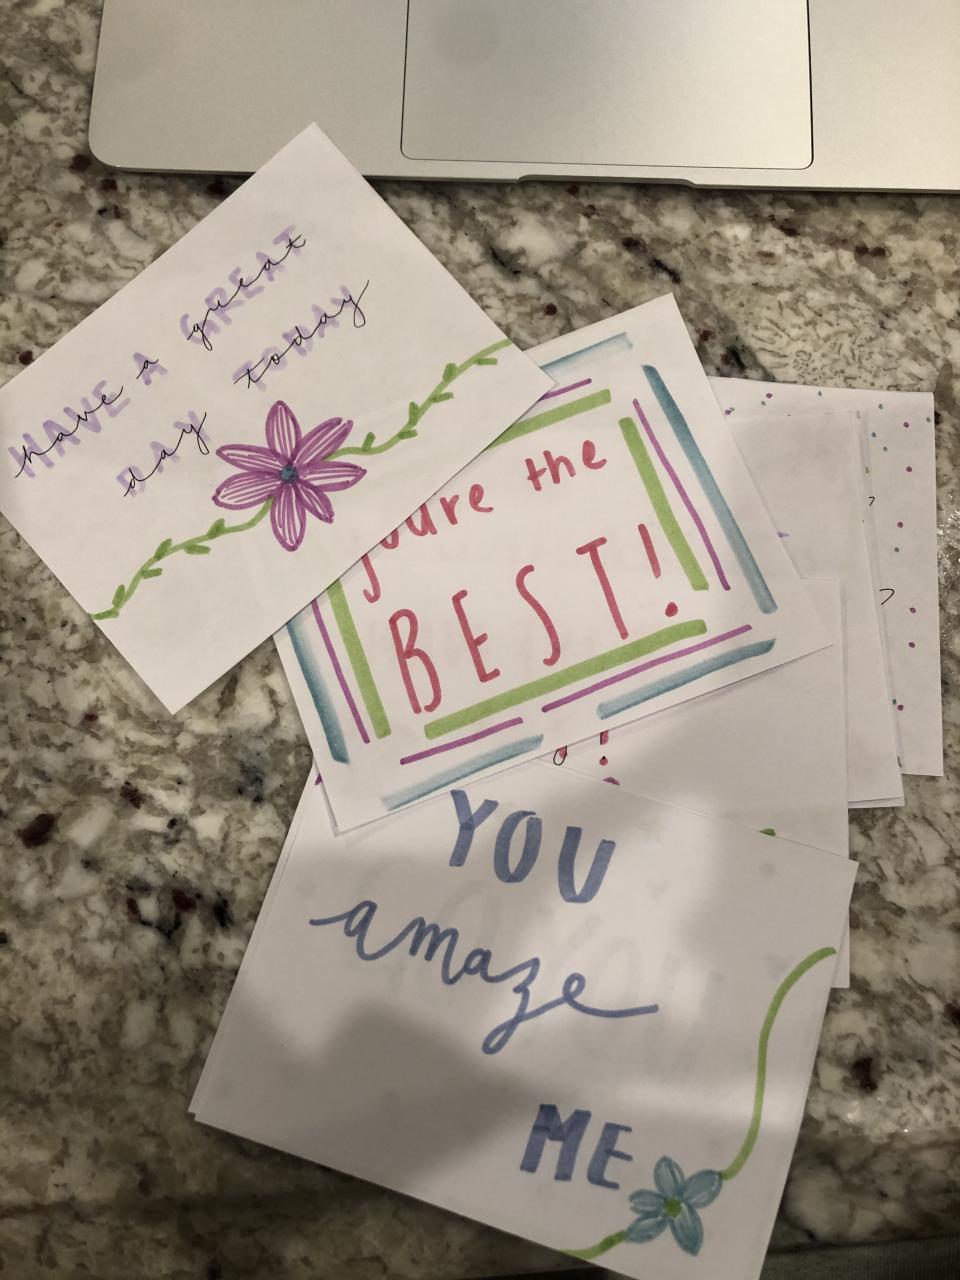 have a great
day today
HAVE A GREAT
DAY TODAY
youre the
BEST!
YOU
amaze
ME